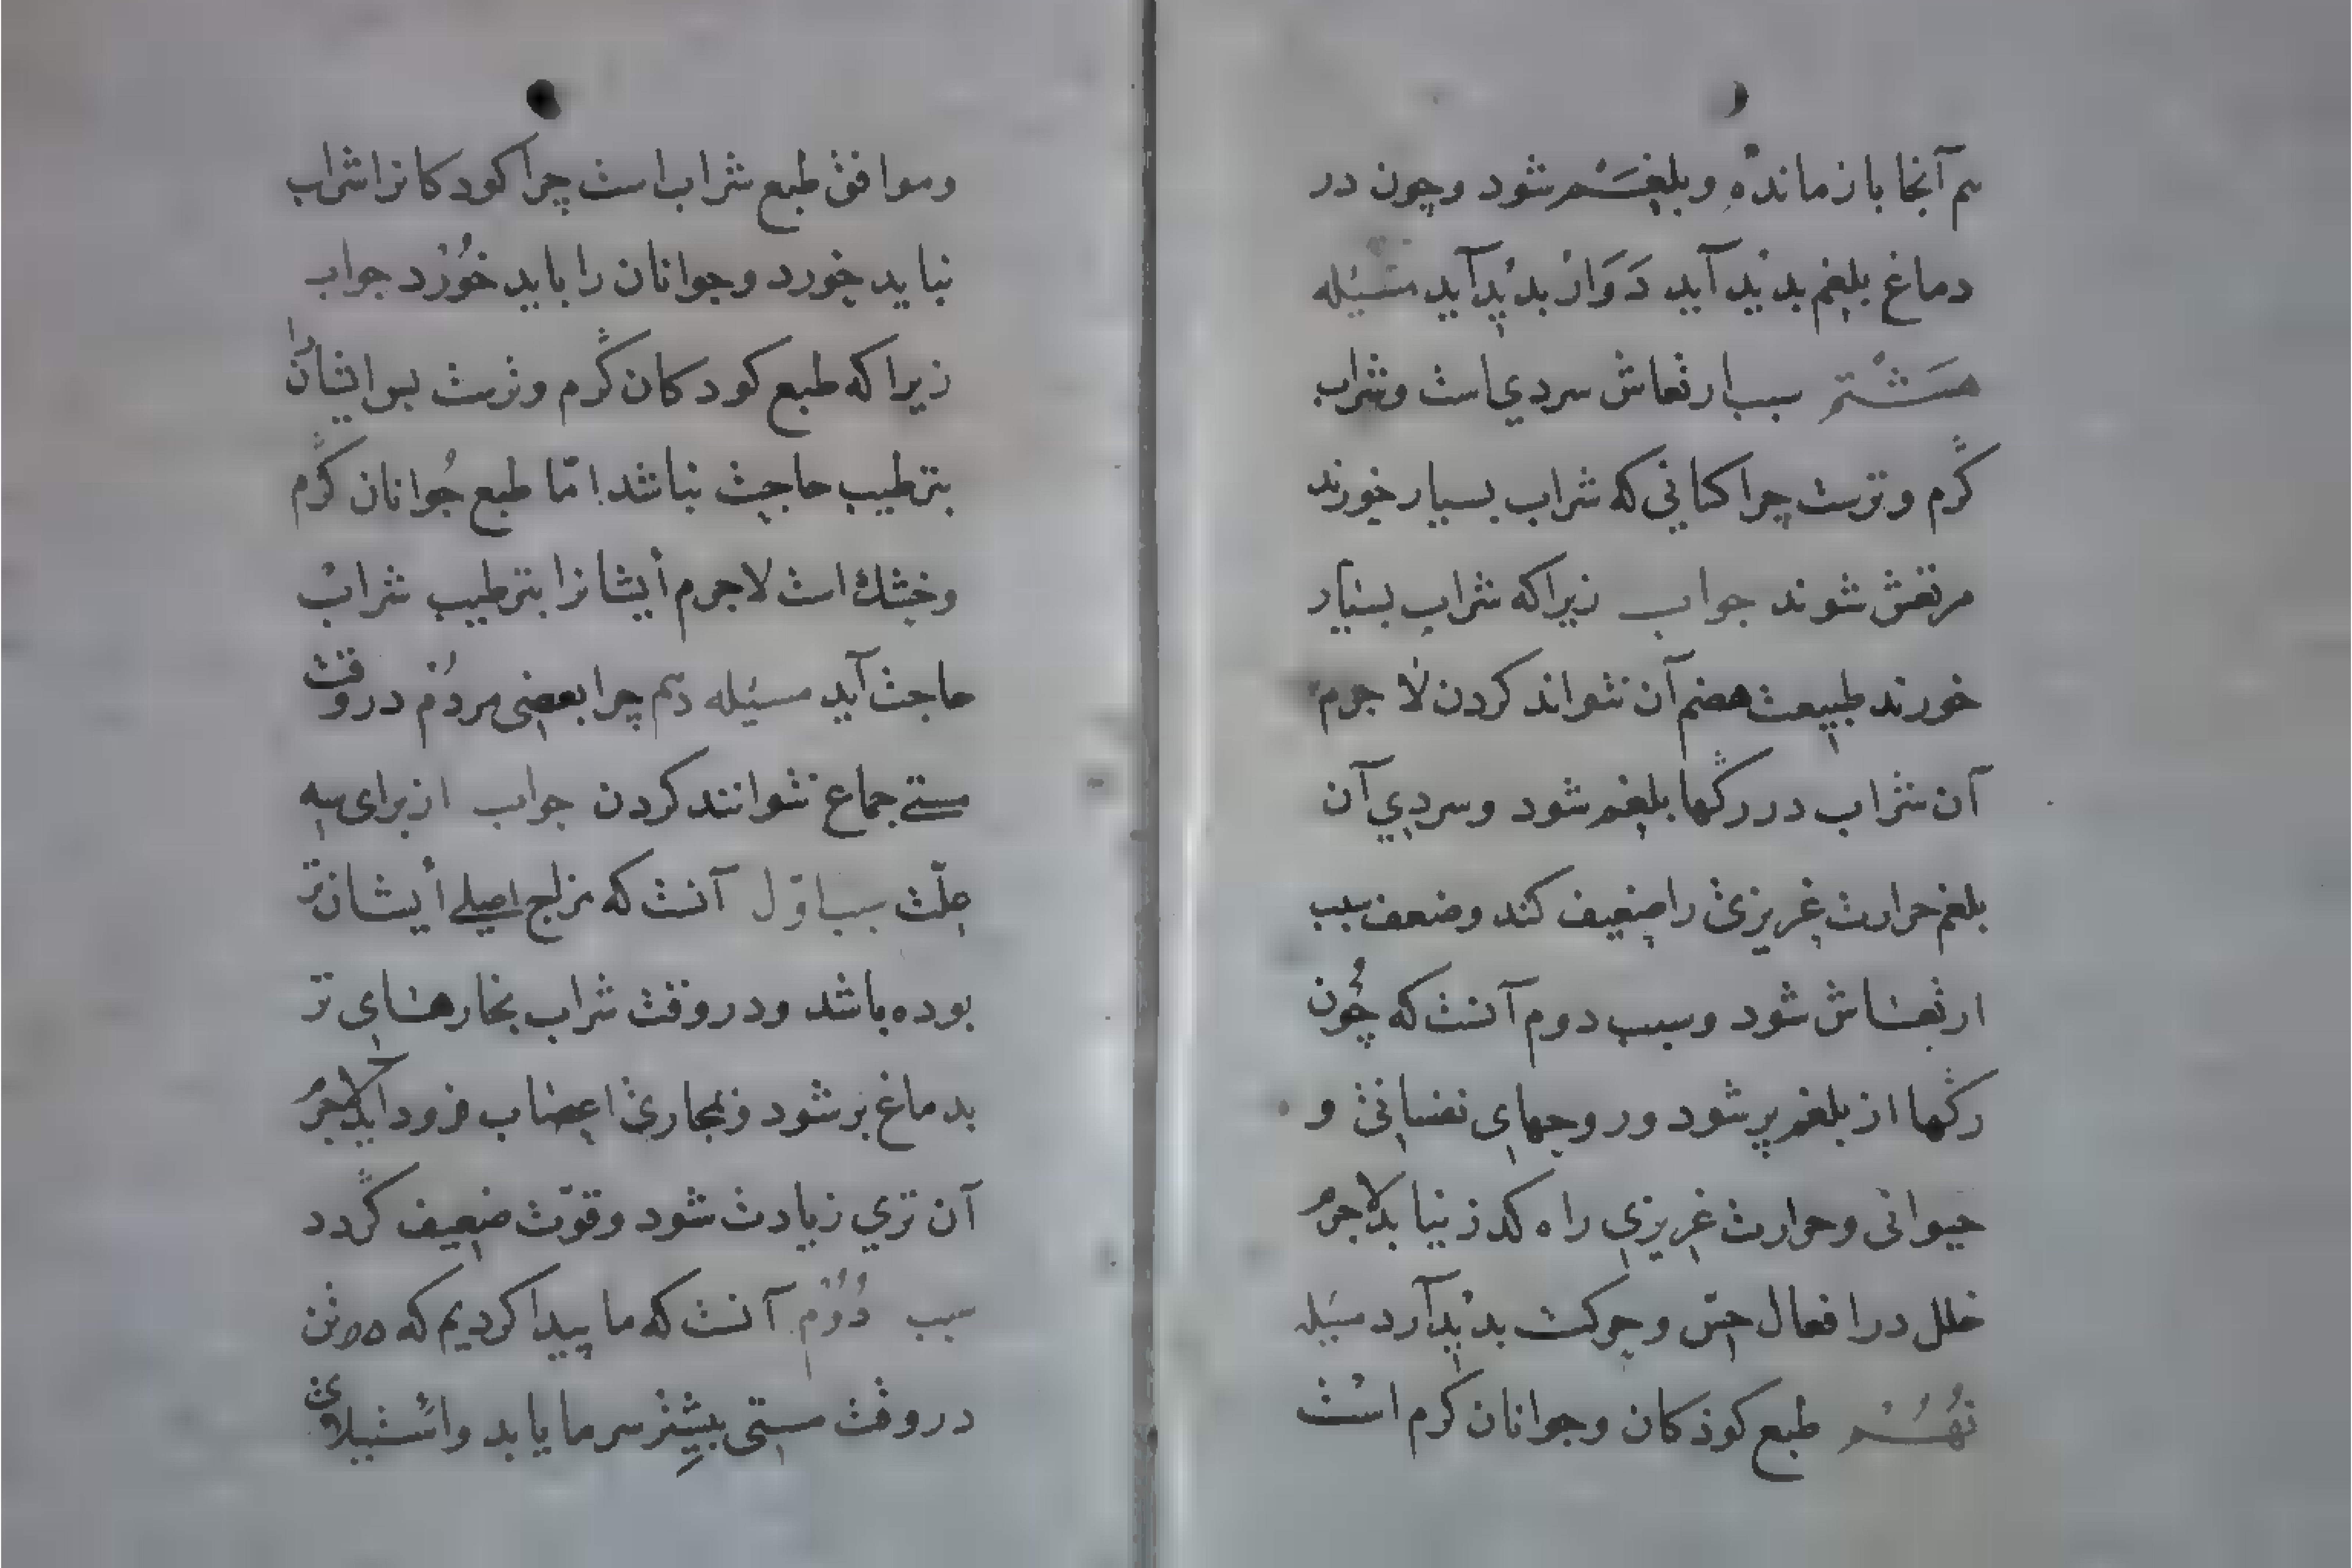 هم آنجا باز مانده وبلغم شود وچون در
دماغ بلغم بدید آید دَوَار بدید آید مسئله
هشتم سبب ارتعاش سردی است وشراب
گرم وترست چرا کسانی که شراب بسیار خورند
مرتعش شوند جواب زیراکه شراب بسیار
خورند طبیعت هضم آن نتواند کردن لا جرم
آن شراب در رگها بلغم شود وسردی آن
بلغم حرارت غریزی را ضعیف کند وضعف سبب
ارتعاش شود وسبب دوم آنست که چُون
رگها از بلغم پر شود وروحهای نفسانی و
حیوانی وحرارت غریزی راه گذر نیابد لاجرم
خلل در افعال حسّ وحرکت بدید آرد مسئله
نهُم طبع کوذکان وجوانان گرم است
وموافق طبع شراب است چرا کودکانرا شراب
نباید خورد وجوانان را باید خُورد جواب
زیرا که طبع کودکان گرم وترست پس ایشانرا
بترطیب حاجت نباشد امّا طبع جُوانان گرم
وخشک است لاجرم أیشانرا بترطیب شراب
حاجت آید مسئله دهم چرا بعضی مردُم در وقت
مستی جماع نتوانند کردن جواب از برای سه
علّت سبب اوّل آنست که مزاج اصلی أیشان تر
بوده باشد ودر وقت شراب بخارهای تر
بدماغ بر شود وبمجاری اعصاب فرود آید لاجرم
آن تری زیادت شود وقوّت ضعیف گردد
سبب دُوُم آنست که ما پیدا کردیم که تن
در وقت مستی بیشتر سرما یابد واستیلای